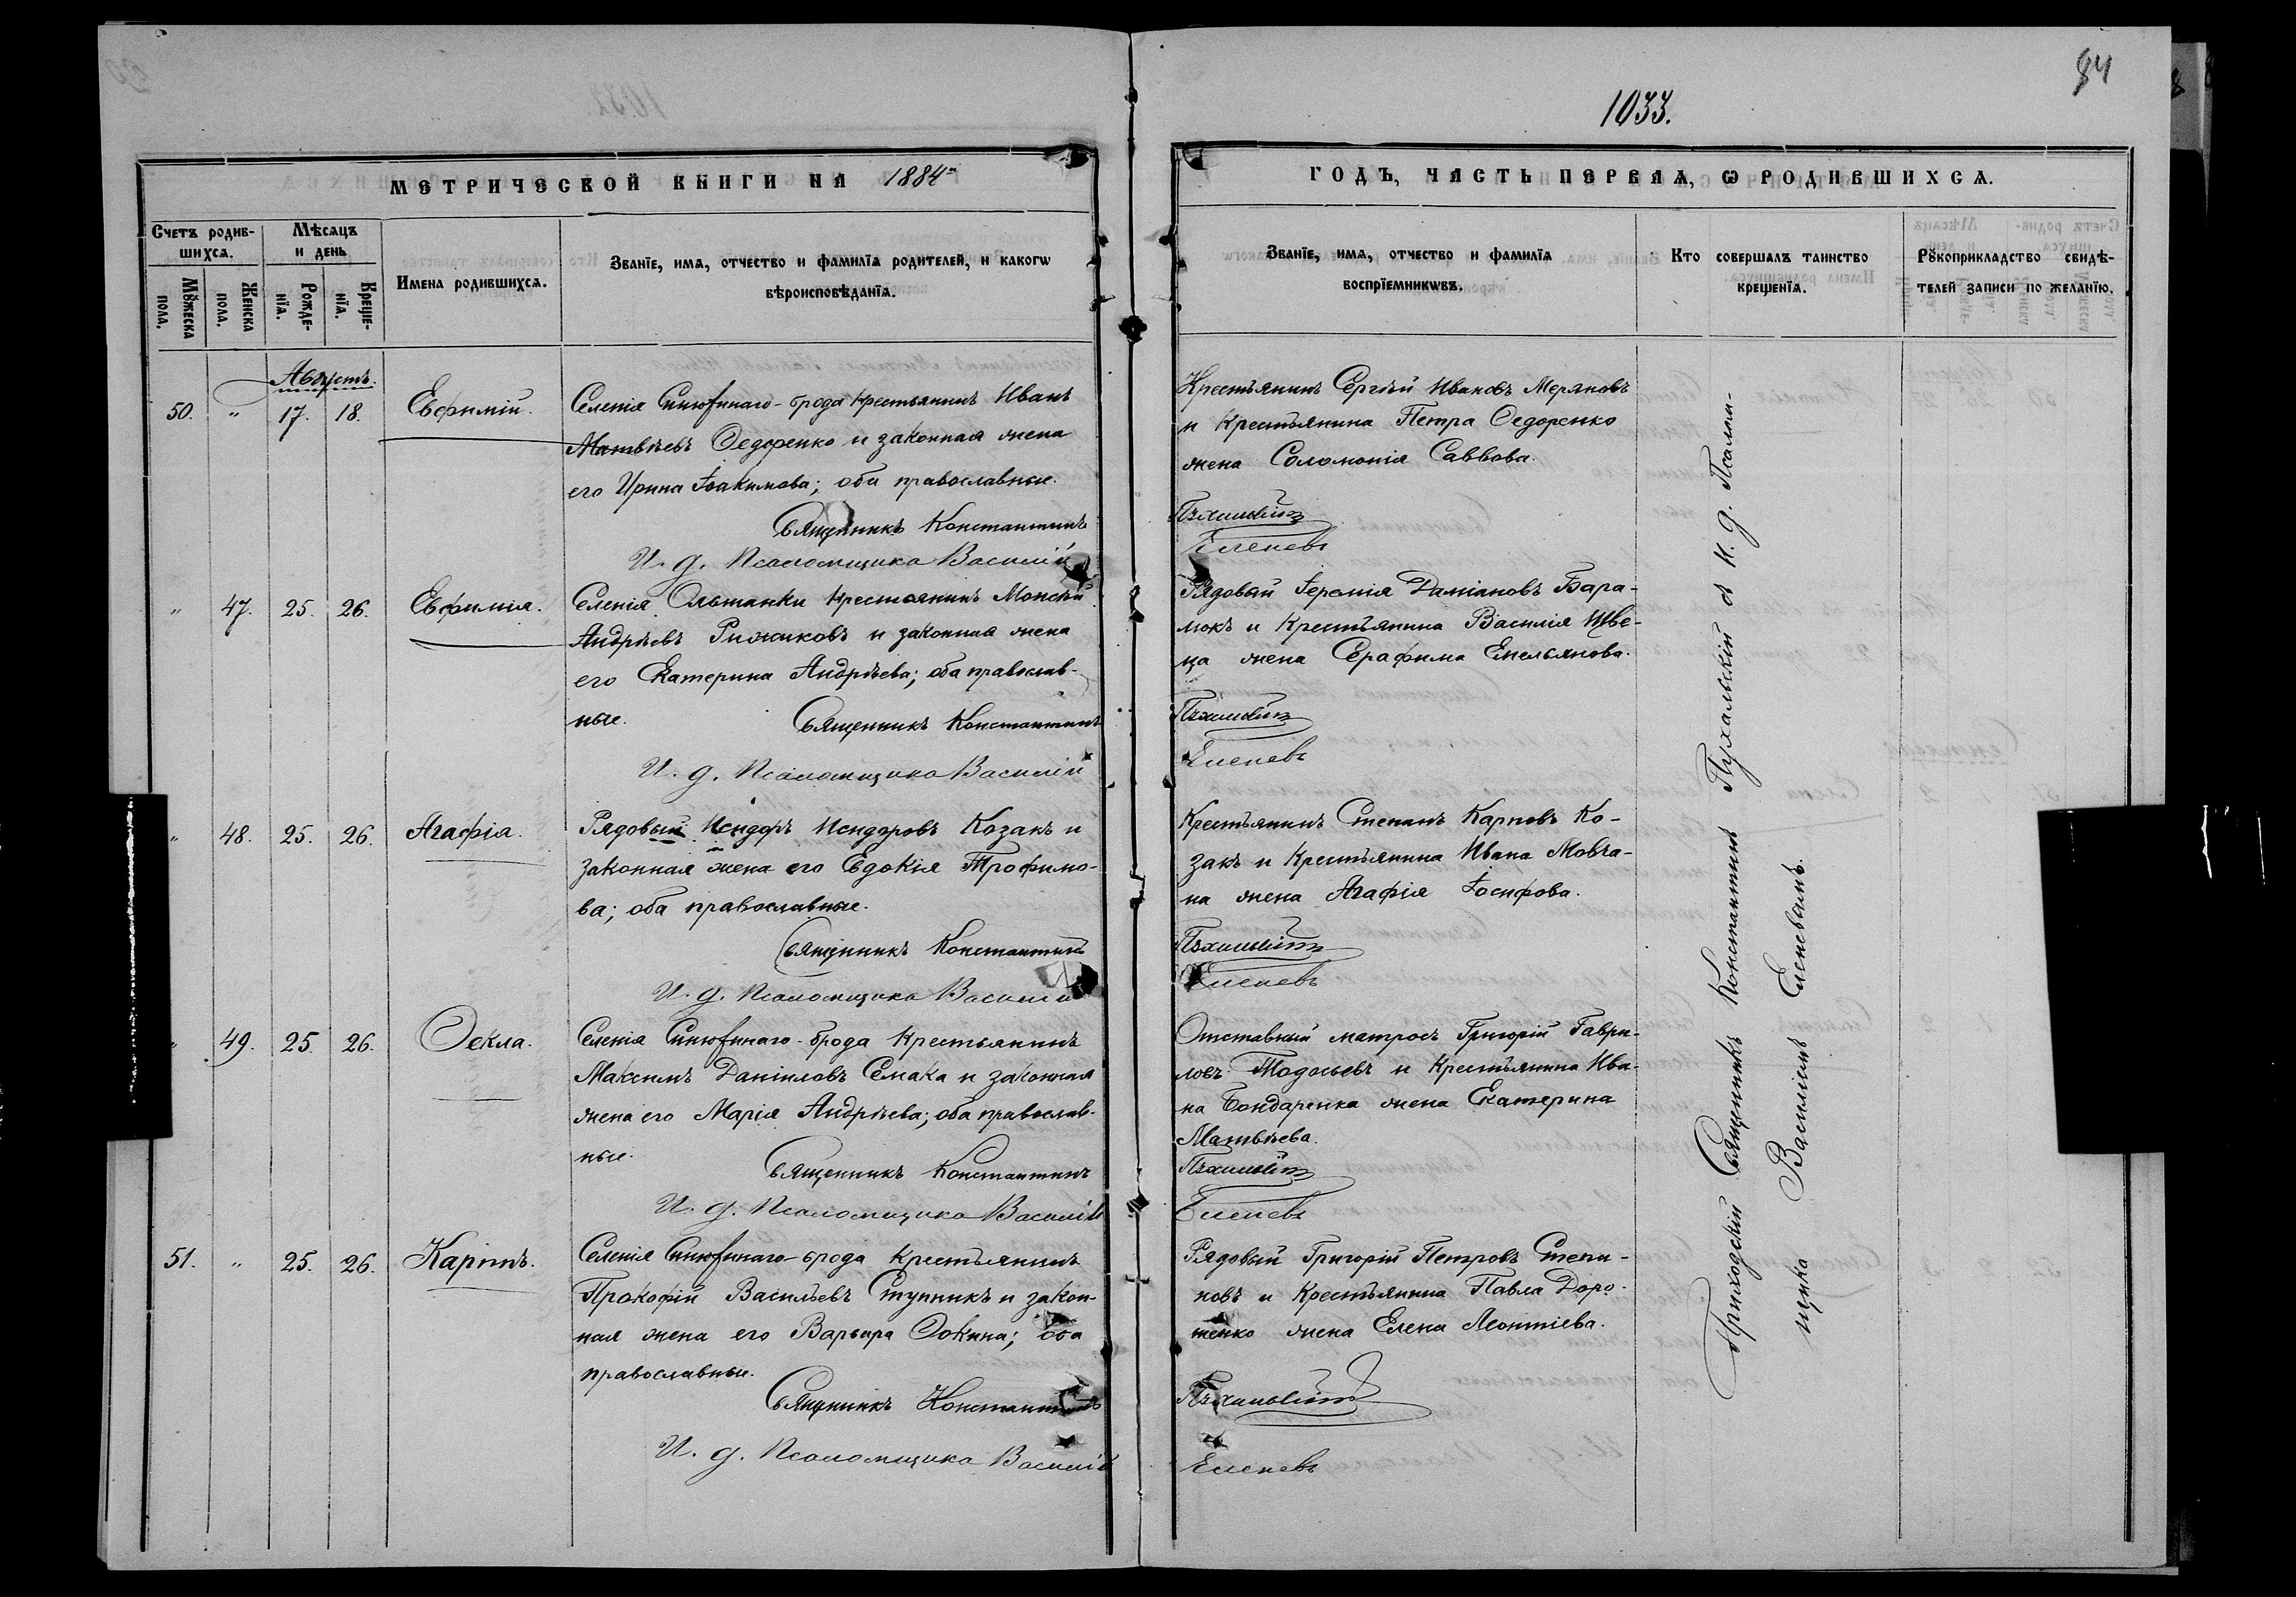 84
1033.
МЕТРИЧЕСКОЙ КНИГИ НА 1884й
ГОДЪ, ЧАСТЬ ПЕРВАѦ, Ѡ РОДИВШИХСѦ.
Счетъ родив-
шихсѧ.
Мꙋжеска
пола.
Женска
пола.
Мѣсѧцъ
и день
Рожде-
нїѧ.
Креще-
нїѧ.
Имена родившихсѧ.
Званїе, имѧ, отчество и фамилїѧ родителей, и какогѡ
вѣроисповѣданїѧ.
Званїе, имѧ, отчество и фамилїѧ
воспрїемникѡвъ.
Кто совершалъ таинство
крещенїѧ.
Рꙋкоприкладство свидѣ-
телей записи по желанїю.
Августъ.
50. " 17. 18. Евфимій.
Селенія Синюхинаго-брода крестьянинъ Иванъ
Матвѣевъ Ѳедоренко и законная жена
его Ирина Іоакимова; оба православные.
Священникъ Константинъ
И. д. Псаломщика Василій
Крестьянинъ Сергѣй Ивановъ Меряновъ
и крестьянина Петра Ѳедоренко
жена Соломонія Саввова.
Пухальскій
Еленевъ
" 47. 25. 26. Евфимія.
Селенія Ольшанки крестьянинъ Моисѣй
Андрѣевъ Рижиковъ и законная жена
его Екатерина Андрѣева; оба православ-
ные.
Священникъ Константинъ
И. д. Псаломщика Василій
Рядовый Іеремія Даміановъ Бара-
мокъ и крестьянина Василія Шве-
ца жена Серафима Емельянова.
Пухальскій
Еленевъ
" 48. 25. 26. Агафія.
Рядовый Исидоръ Исидоровъ Козакъ и
законная жена его Евдокія Трофимо-
ва; оба православные.
Священникъ Константинъ
И. д. Псаломщика Василій
Крестьянинъ Степанъ Карповъ Ко-
закъ и крестьянина Ивана Мовча-
на жена Агафія Іосифова.
Пухальскій
Еленевъ
" 49. 25. 26. Ѳекла.
Селенія Синюхинаго-брода крестьянинъ
Максимъ Даниловъ Семака и законная
жена его Марія Андрѣева; оба православ-
ные.
Священникъ Константинъ
И. д. Псаломщика Василій
Отставный матросъ Григорій Гаври-
ловъ Тодосьевъ и крестьянина Ива-
на Бондаренка жена Екатерина
Матвѣева.
Пухальскій
Еленевъ
51. " 25. 26. Каріпъ.
Селенія Синюхинаго-брода крестьянинъ
Прокофій Васильевъ Ступникъ и закон-
ная жена его Варвара Фокина; оба
православные.
Священникъ Константинъ
И. д. Псаломщика Василій
Рядовый Григорій Петровъ Степа-
новъ и крестьянина Павла Доро-
шенко жена Елена Леонтіева.
Пухальскій
Еленевъ
Приходскій Священникъ Константинъ Пухальскій съ И. д. Псалом-
щика Василіемъ Еленевымъ.